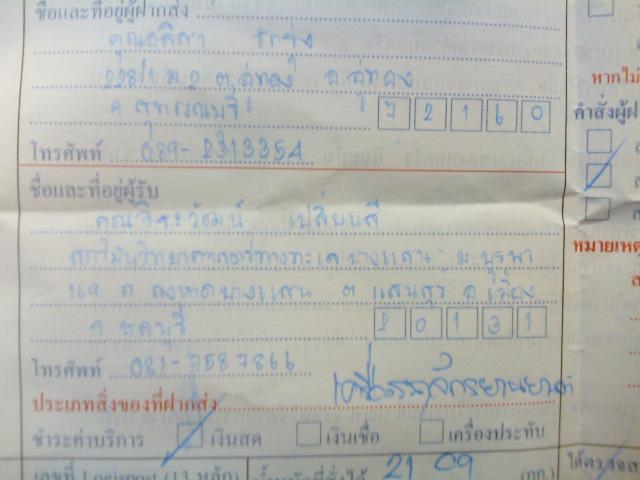 ชื่อและที่อยู่ผู้ฝากส่ง
228/1 ม.2 ต.อู่ทอง อ.อู่ทอง
จ.สุพรรณบุรี 72160
โทรศัพท์ 089-2313354
ชื่อและที่อยู่ผู้รับ
เปลี่ยนสี
สถาบันวิทยาศาสตร์ทางทะเล บางแสน ม.บูรพา
169 ถ.ลงหาดบางแสน ต.แสนสุข อ.เมือง
จ.ชลบุรี 20131
โทรศัพท์ 081-7587866
ประเภทสิ่งของที่ฝากส่ง
ชำระค่าบริการ เงินสด เงินเชื่อ เครื่องประทับ
เลขที่ Logispost (13 หลัก) 21 09 (กก.)
หากไม่
คำสั่งผู้ฝ
หมายเหตุ
ได้ตรวจส